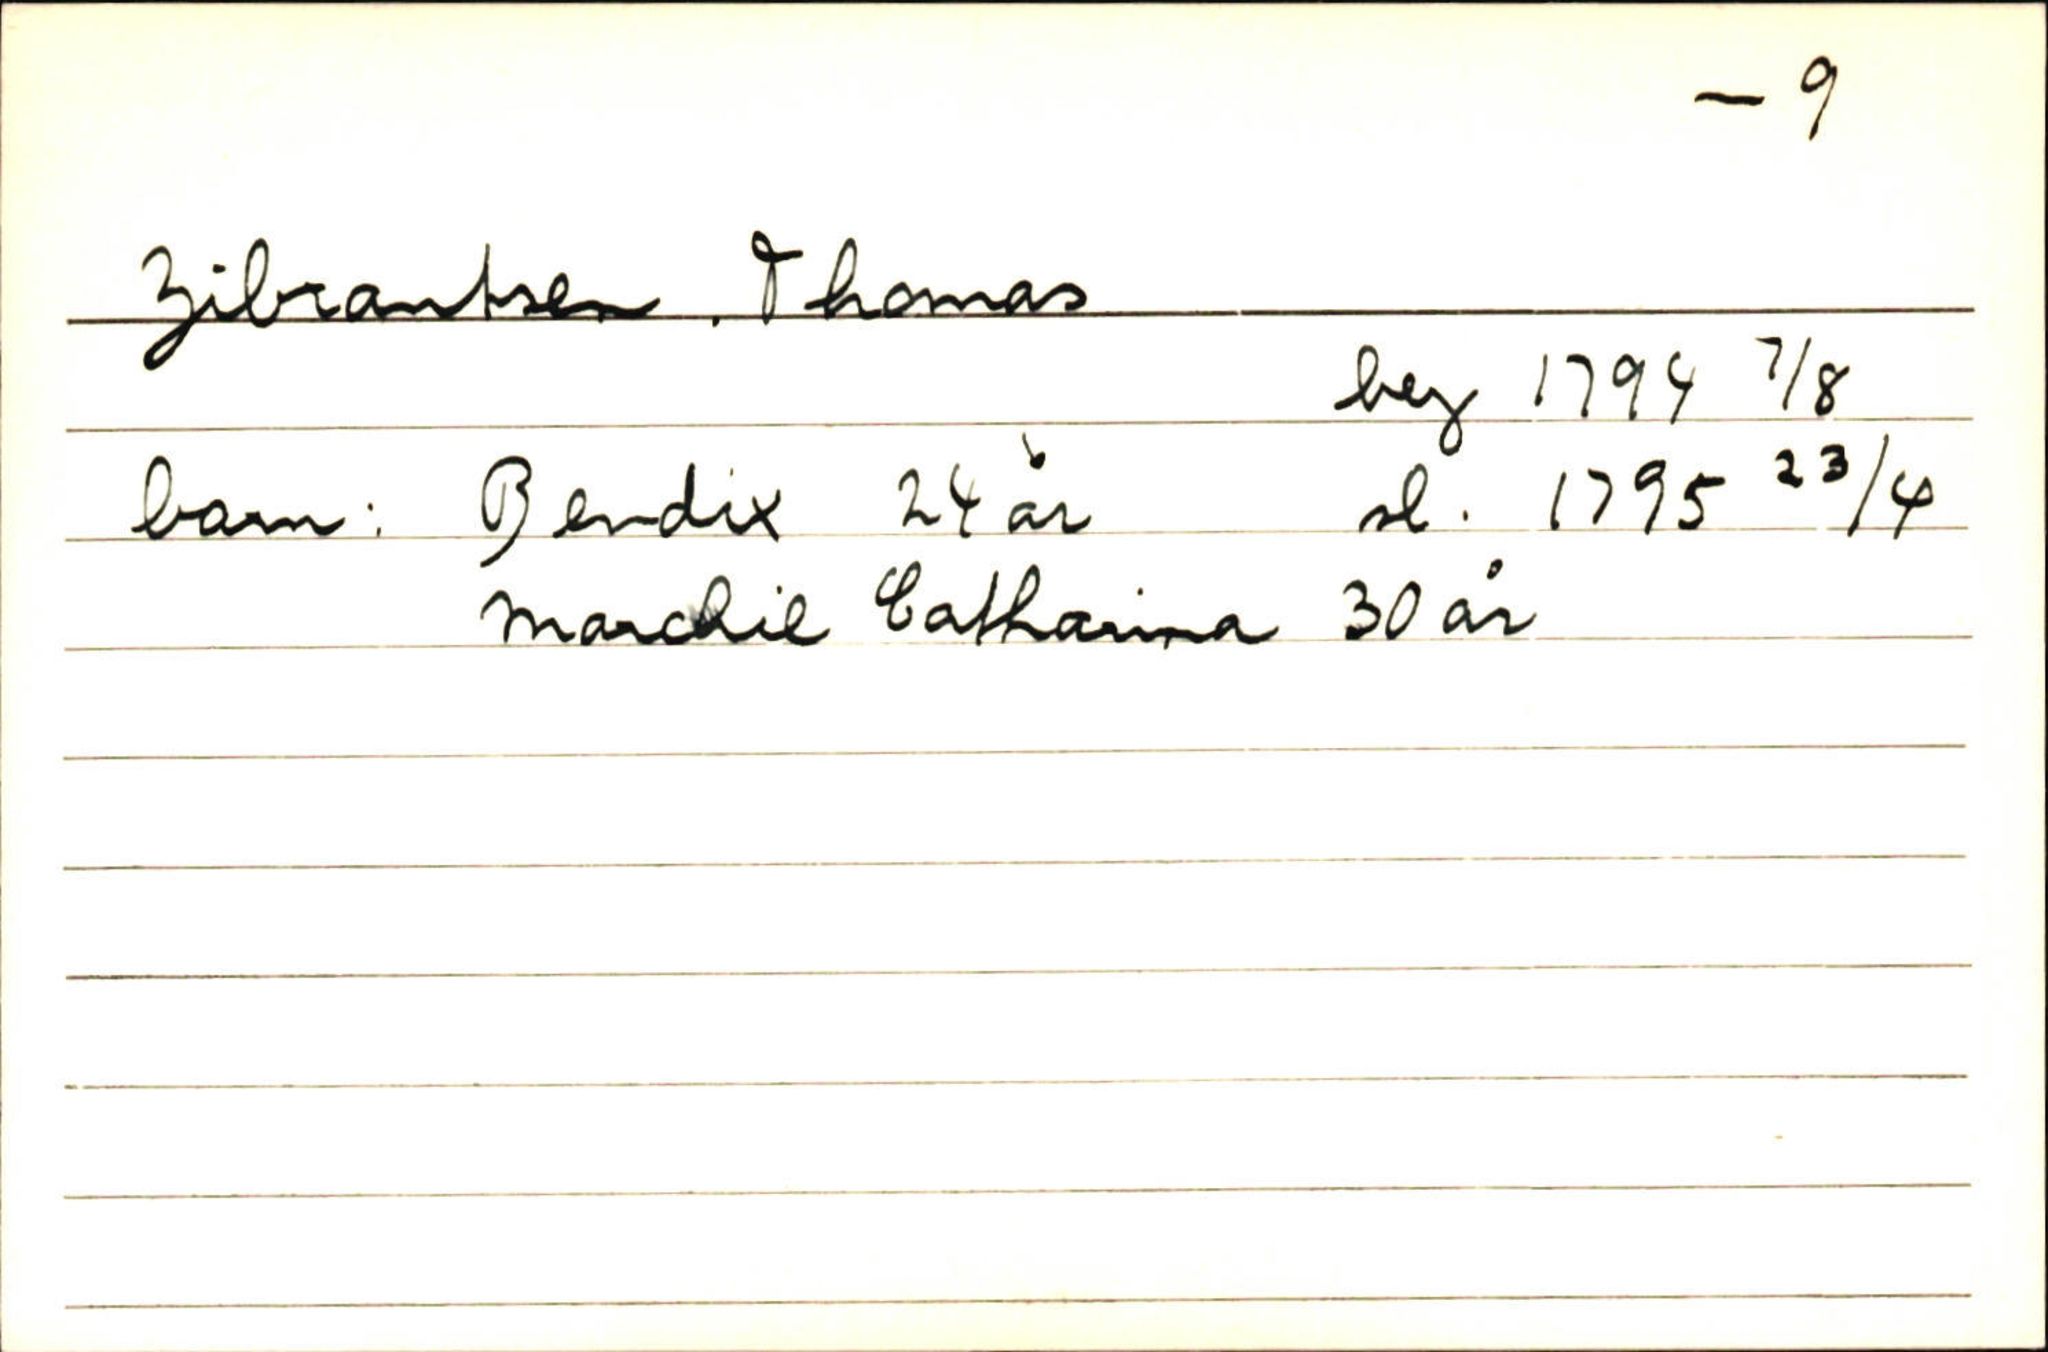 — 9
Zibrantsen, Thomas
beg 1794 7/8
barn: Bendix 24 år sl. 1795 23/4
Marchie Catharina 30 år